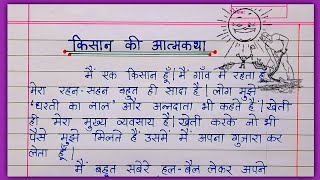 किसान की आत्मकथा
मैं एक किसान हूँ। मैं गाँव में रहता हूँ
मेरा रहन-सहन बहुत ही सादा है। लोग मुझे
'धरती का लाल' और अन्नदाता भी कहते हैं। खेती
ही मेरा मुख्य व्यवसाय है। खेती करके जो भी
पैसे मुझे मिलते हैं उसमें मैं अपना गुजारा कर
लेता हूँ।
मैं बहुत सवेरे हल-बैल लेकर अपने